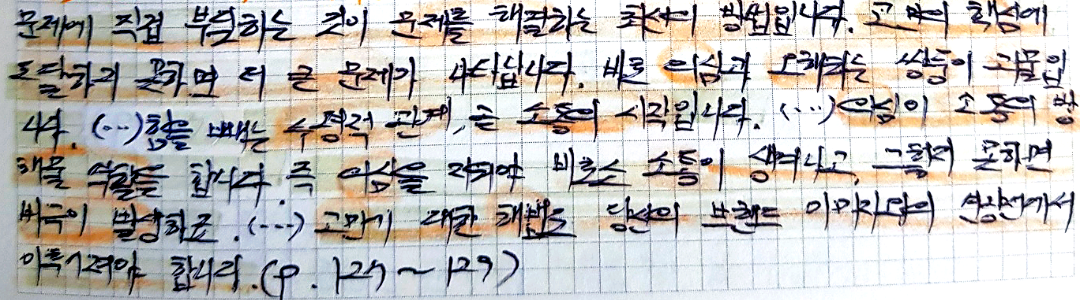 문제에 직접 부딪하는 것이 문제를 해결하는 최선의 방법입니다. 고민의 핵심에
도달하지 못하면 더 큰 문제가 나타납니다. 바로 의심과 오해라는 쌍둥이 괴물입
니다. (…) 힘을 빼는 수평적 관계, 곧 소통의 시작입니다. (…) 의심이 소통의 방
해물 역할을 합니다. 즉 의심을 지워야 비로소 소통이 생겨나고, 그렇지 못하면
비극이 발생하죠. (…) 고민기 대한 해법도 당신의 브랜드 이미지의 연장선에서
이루어져야 합니다. (p. 127~129)